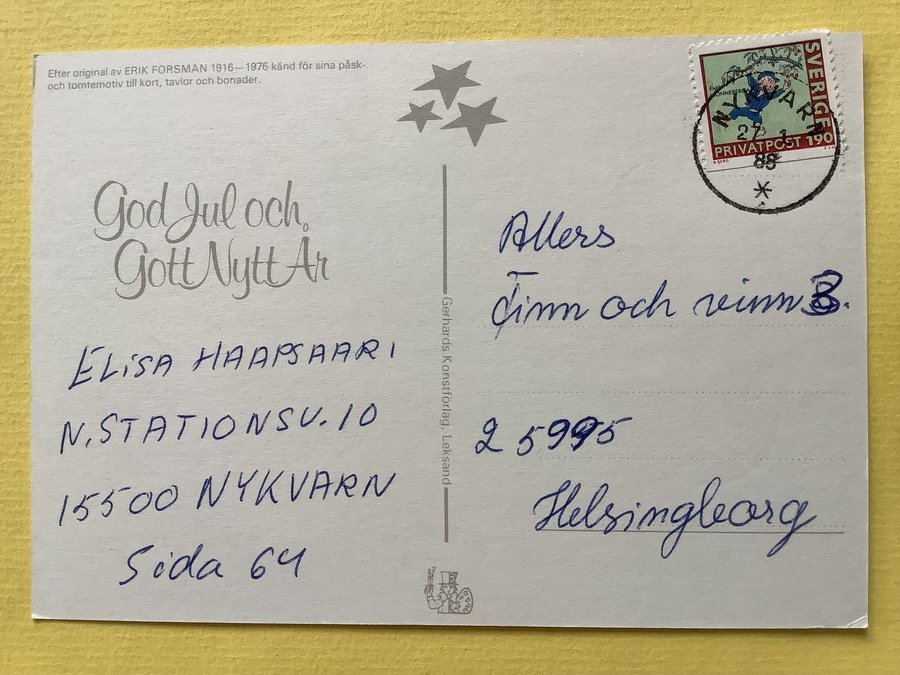 Efter original av ERIK FORSMAN 1916—1976 känd för sina påsk-
och tomtemotiv till kort, tavlor och bonader.
God Jul och
Gott Nytt År
ELISA HAAPSAARI
N.STATIONSV.10
15500 NYKVARN
Sida 64
Gerhards Konstförlag, Leksand
SVERIGE
PRIVATPOST 190
NYKVARN
27 1
88
Allers
Finn och vinn 3.
25995
Helsingborg